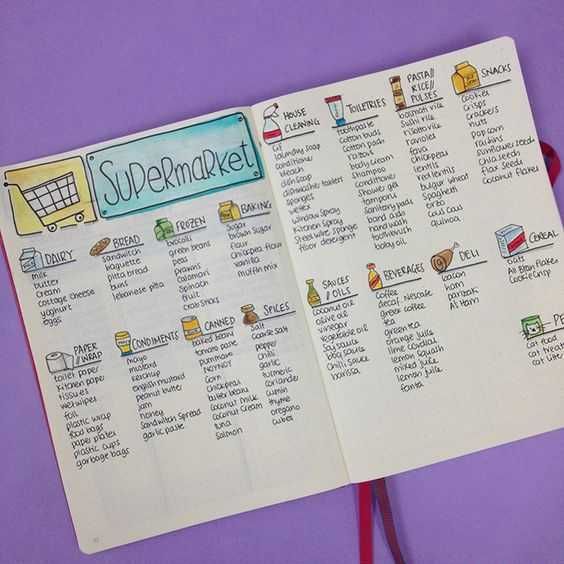 SUPERMARKET
DAIRY
milk
butter
cream
cottage cheese
yoghurt
eggs
BREAD
sandwich
baguette
pitta bread
buns
lebanese pita
FROZEN
brocoli
green beans
peas
prawns
calamari
spinach
fruit
crabsticks
BAKING
sugar
brown sugar
flour
chickpea flour
vanilla
muffin mix
PAPER
//WRAP
toilet paper
kitchen paper
tissues
wetwipes
foil
plastic wrap
food bags
paper plates
plastic cups
garbage bags
CONDIMENTS
mayo
mustard
ketchup
english mustard
peanut butter
jam
honey
sandwich spread
garlic paste
CANNED
baked beans
tomato paste
NOYNOY
corn
chickpeas
butter beans
coconut milk
coconut cream
tuna
salmon
SPICES
salt
coarse salt
pepper
chilli
garlic
turmeric
coriander
cumin
thyme
oregano
cubes
HOUSE
CLEANING
cif
laundry soap
conditioner
bleach
dish soap
dishwasher tablets
sponges
wettex
window spray
kitchen spray
steel wire sponge
floor detergent
TOILETRIES
toothpaste
cotton buds
cotton pads
razors
body cream
shampoo
conditioner
shower gel
tampons
sanitary pads
band aids
hand wash
toothbrush
baby oil
PASTA//
RICE//
PULSES
basmati rice
sushi rice
risotto rice
ravioles
fava
chickpeas
lentils
red lentils
bulgur wheat
spaghetti
orzo
cous cous
quinoa
SNACKS
cookies
crisps
crackers
nuts
popcorn
raisins
sunflower seeds
chia seeds
flax seeds
coconut flakes
SAUCES
//OILS
coconut oil
olive oil
vinegar
vegetable oil
soy sauce
bbq sauce
chilli sauce
harissa
BEVERAGES
coffee
decaf. Nescafe
greek coffee
tea
green tea
orange juice
lime cordial
lemon squash
mixed juice
lemon juice
fanta
DELI
bacon
ham
parizaki
Al. Ham
CEREAL
oats
All Bran Flakes
Cookie Crisp
PE
cat food
cat treats
cat litter